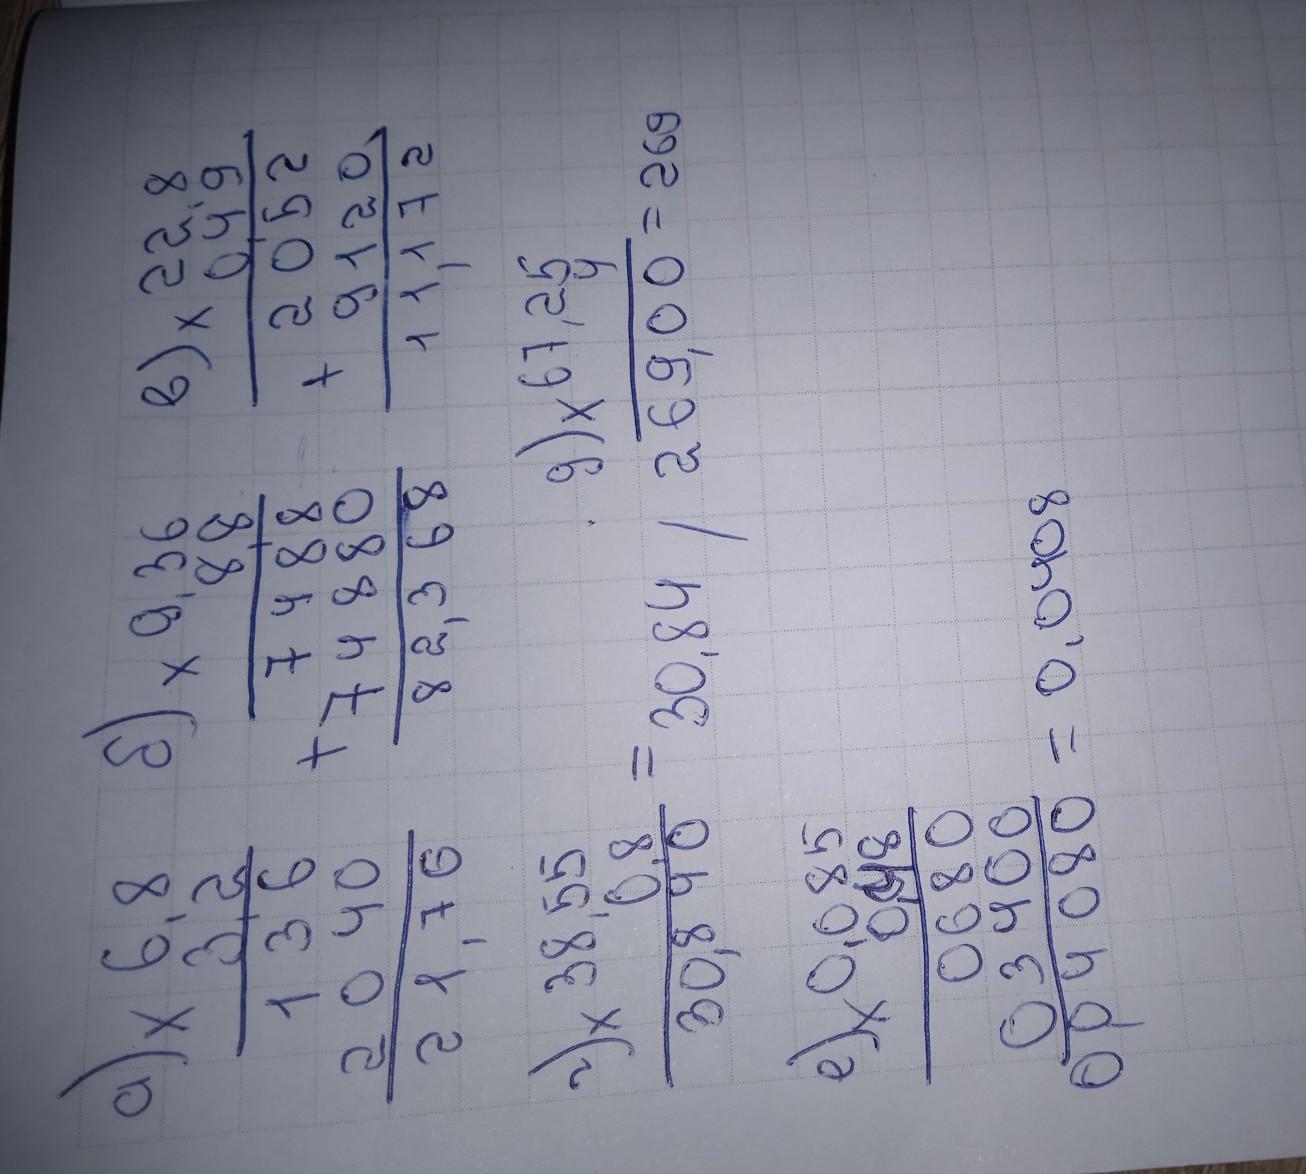 а) × 6,8
3,2
136
2040
21,76
б) × 9,36
88
7488
+ 74880
82,368
в) × 22,8
0,49
2052
+ 9120
11,172
г) × 38,55
0,8
30,840 = 30,84 /
д) × 67,25
4
269,00 = 269
е) × 0,085
0680
03400
0,04080 = 0,0408